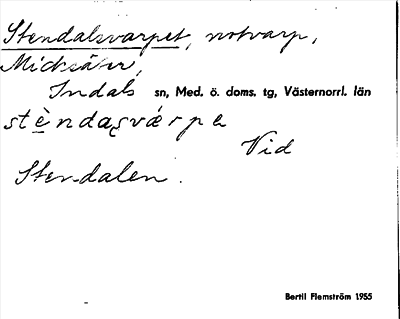 Stendalsvarpet, notvarp,
Micksätr,
Indals sn, Med. ö. doms. tg, Västernorrl. län
stèndaʂvárpe
Vid
Stendalen.
Bertil Flemström 1955